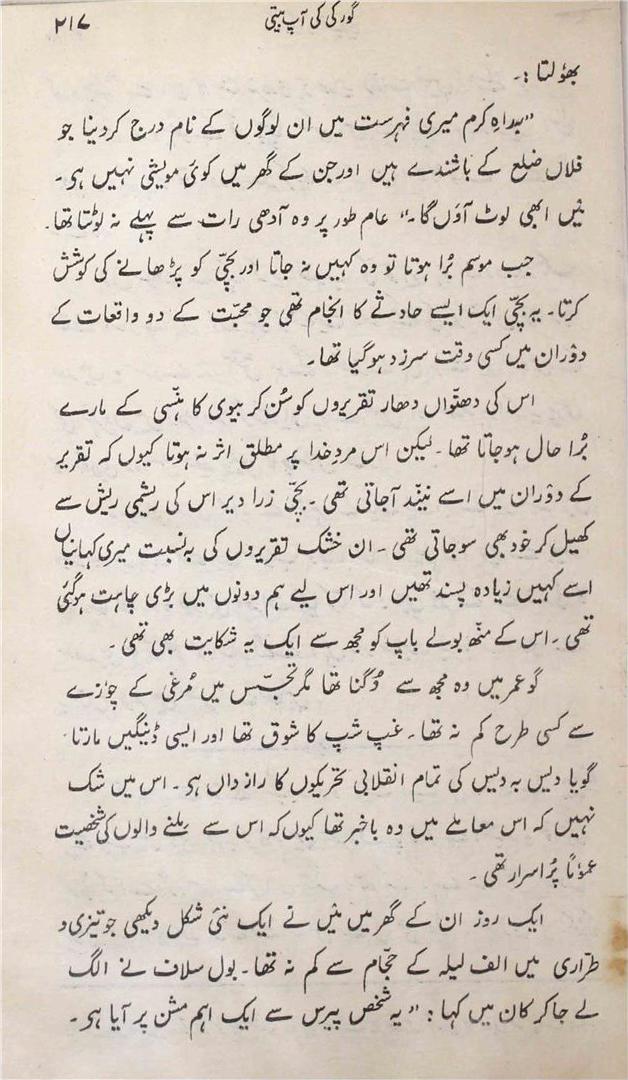 گورکی کی آپ بیتی
۲۱۷
بھولتا :۔
”براہِ کرم میری فہرست میں ان لوگوں کے نام درج کردینا جو
فلاں ضلع کے باشندے ہیں اور جن کے گھر میں کوئی مویشی نہیں ہی۔
میٔں ابھی لوٹ آؤں گا۔“ عام طور پر وہ آدھی رات سے پہلے نہ لوٹتا تھا۔
جب موسم بُرا ہوتا تو وہ کہیں نہ جاتا اور بچّی کو پڑھانے کی کوشش
کرتا۔ یہ بچّی ایک ایسے حادثے کا انجام تھی جو محبّت کے دو واقعات کے
دوٗران میں کسی وقت سرزد ہوگیا تھا۔
اس کی دھنّواں دھار تقریروں کو سُن کر بیوی کا ہنّسی کے مارے
بُرا حال ہوجاتا تھا۔ لیکن اس مردِ خدا پر مطلق اثر نہ ہوتا کیوں کہ تقریر
کے دوٗران میں اسے نیٖند آجاتی تھی۔ بچّی زرا دیر اس کی ریشمی ریش سے
کھیل کر خود بھی سوجاتی تھی۔ ان خشک تقریروں کی بہ نسبت میری کہانیاں
اسے کہیں زیادہ پسند تھیں اور اس لیے ہم دونوں میں بڑی چاہت ہوگئی
تھی۔ اس کے منھ بولے باپ کو مجھ سے ایک یہ شکایت بھی تھی۔
گو عمر میں وہ مجھ سے دُگنا تھا مگر تجسّس میں مُرغی کے چوٗزے
سے کسی طرح کم نہ تھا۔ غپ شپ کا شوق تھا اور ایسی ڈینگیں مارتا
گویا دیس بہ دیس کی تمام انقلابی تحریکوں کا راز داں ہی۔ اس میں شک
نہیں کہ اس معاملے میں وہ باخبر تھا کیوں کہ اس سے ملنے والوں کی شخصیت
عموٗمًا پُراسرار تھی۔
ایک روز ان کے گھر میں میٔں نے ایک نئی شکل دیکھی جو تیزی و
طرّاری میں الف لیلہ کے حجّام سے کم نہ تھا۔ بول سلاف نے الگ
لے جاکر کان میں کہا : ”یہ شخص پیرس سے ایک اہم مشن پر آیا ہی۔